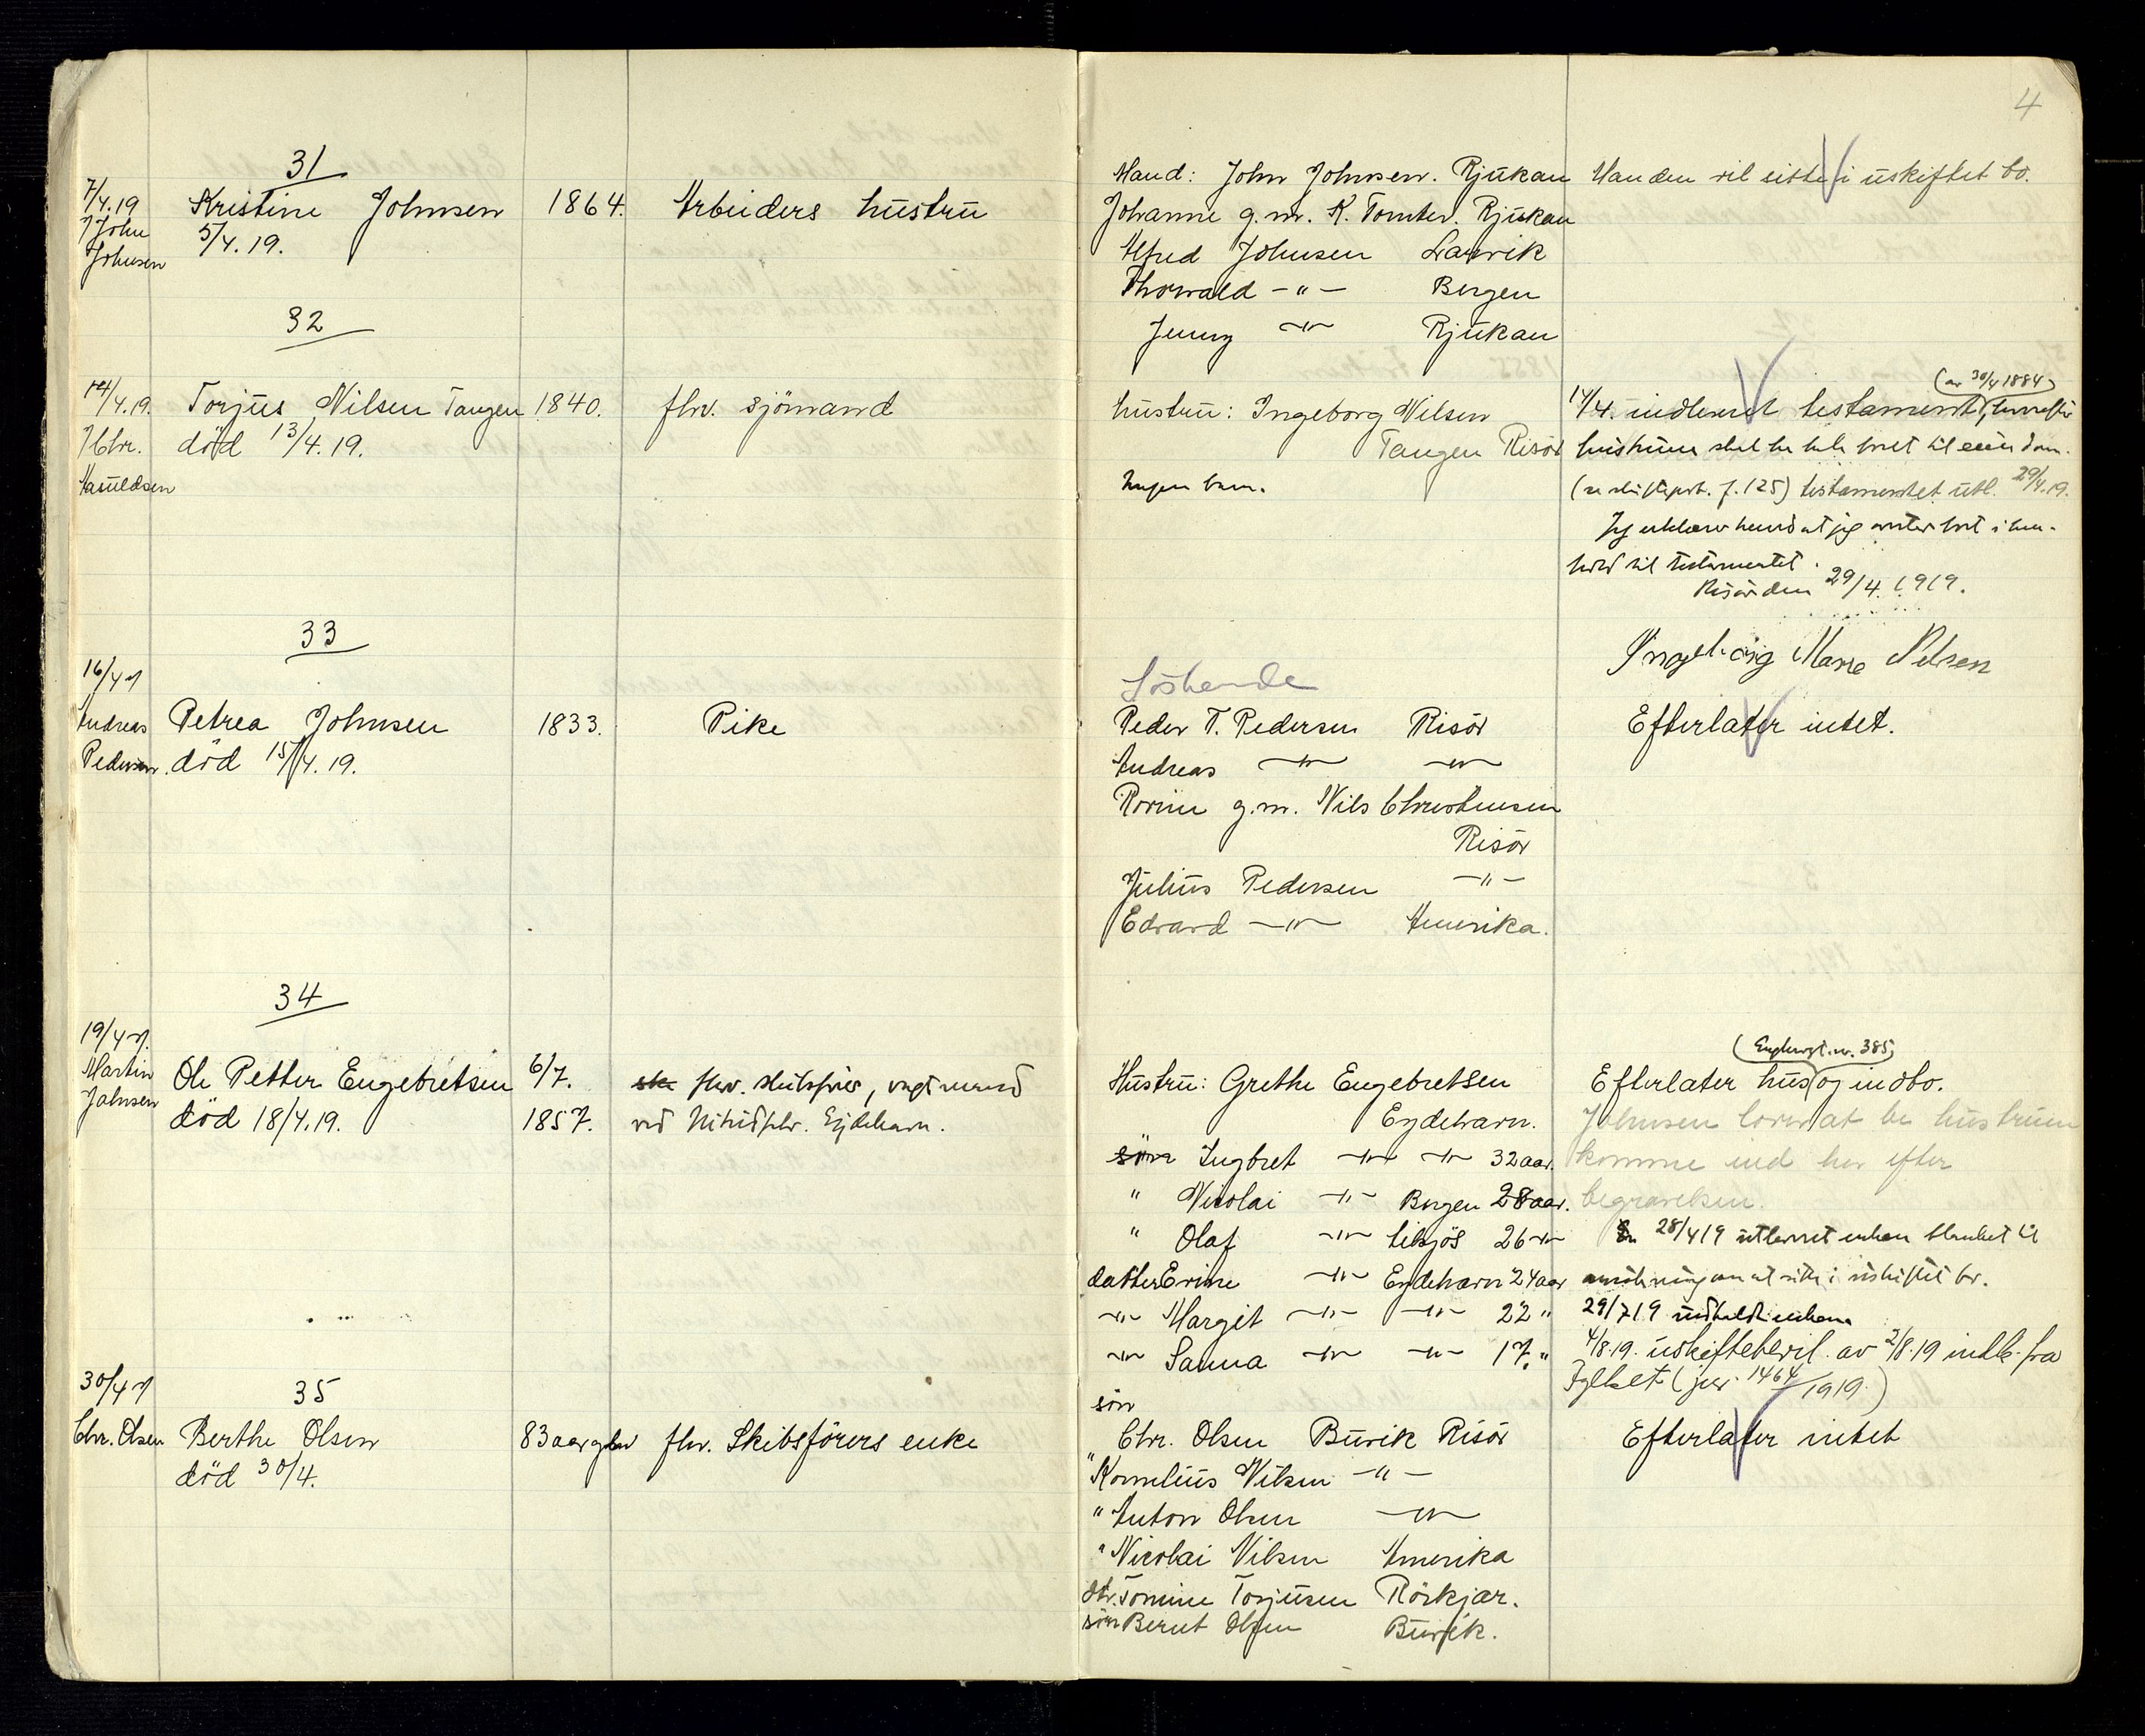 4
31
7/4.19
John
Johnsen
Kristine Johnsen
5/4. 19.
1864.
Arbeiders hustru
Mand: John Johnsen. Rjukan
Johanne g. m. K. Tomter. Rjukan
Alfred Johnsen Larvik
Thorvald -"- Bergen
Jenny -"- Rjukan
Manden vil sitte i uskiftet bo.
32
14/4.19.
Chr.
Torjus Nilsen Tangen
död 13/4. 19.
1840.
fhv. sjömand
Hustru: Ingeborg Nilsen
Tangen Risör
Ingen barn.
(av 30/4 1884)
14/4. indleveret testament, hvorefter
hustruen skal ha hele boet til eiendom.
(se skifteprot. f. 125) testamentet utl. 29/4.19.
Jeg erklærer herved at jeg overtar boet i hen-
hold til testamentet.
Risör den 29/4. 1919.
Ingeborg Marie Nilsen
33
16/4
Andreas
Pedersen.
Petrea Johnsen
död 15/4. 19.
1833.
Pike
Söskende
Peder T. Pedersen Risör
Andreas -"- -"-
g. m. Nils Christensen
Risör
Julius Pedersen -"-
Edvard -"- Amerika.
Efterlater intet.
34
19/4
Martin
Johnsen
Ole Petter Engebretsen
död 18/4.19.
6/7.
1857.
fhv. skibsfører, vagtmand
ved Nitridfabr. Eydehavn.
Hustru: Grethe Engebretsen
Eydehavn.
sön Ingbret -"- -"- 32 aar.
" Nicolai -"- Bergen 28 aar.
" Olaf -"- tilsjös 26 -"-
datter Erine -"- Eydehavn 24 aar
-"- Margit -"- -"- 22 "
-"- Sanna -"- -"- 17. "
(Eydehavn. nr. 385)
Efterlater hus og indbo.
Johnsen lovet at be hustruen
komme ind her efter
begravelsen.
28/4 19 utleveret enken blanket til
ansökning om at sitte i uskiftet bo.
29/7 19 indkaldt enken
4/8.19. uskiftebevil. av 2/8.19 indk. fra
Fylket (jnr. 1464/1919.)
35
30/4
Chr. Olsen
Berthe Olsen
död 30/4.
83 aar gl.
fhv. Skibsförers enke
sön
Chr. Olsen Buvik Risör
" Kornelius Nilsen -"-
" Anton Olsen -"-
" Nicolai Nilsen Amerika
dtr. Tomine Torjusen Rörkjær.
sön Bernt Olsen Buvik.
Efterlater intet